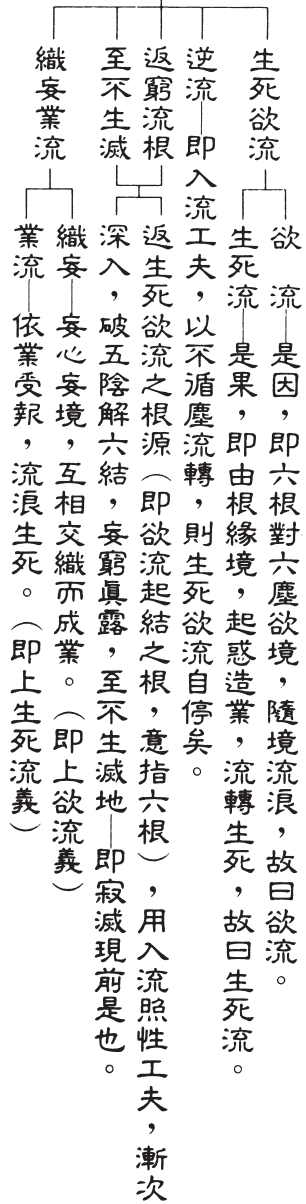 生死欲流
欲　流—是因，即六根對六塵欲境，隨境流浪，故曰欲流。
生死流—是果，即由根緣境，起惑造業，流轉生死，故曰生死流。
逆流—即入流工夫，以不循塵流轉，則生死欲流自停矣。
返窮流根
至不生滅
返生死欲流之根源（即欲流起結之根，意指六根），用入流照性工夫，漸次
深入，破五陰解六結，妄窮真露，至不生滅地—即寂滅現前是也。
織妄業流
織妄—妄心妄境，互相交織而成業。（即上欲流義）
業流—依業受報，流浪生死。（即上生死流義）